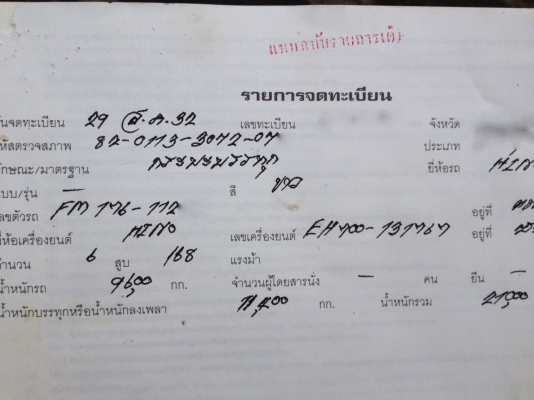 แทนฉบับรายการเดิม
รายการจดทะเบียน
วันจดทะเบียน 29 ส.ค.32 เลขทะเบียน จังหวัด
รหัสตรวจสภาพ 82-0113-3072-07 ประเภท
ลักษณะ/มาตรฐาน กระบะบรรทุก ยี่ห้อรถ HINO
แบบ/รุ่น — สี ขาว
เลขตัวรถ FM 176-112 อยู่ที่
ยี่ห้อเครื่องยนต์ HINO เลขเครื่องยนต์ EH700-131767 อยู่ที่
จำนวน 6 สูบ 168 แรงม้า
น้ำหนักรถ 9600 กก. จำนวนผู้โดยสารนั่ง — คน ยืน —
น้ำหนักบรรทุกหรือน้ำหนักลงเพลา กก. น้ำหนักรวม 21000